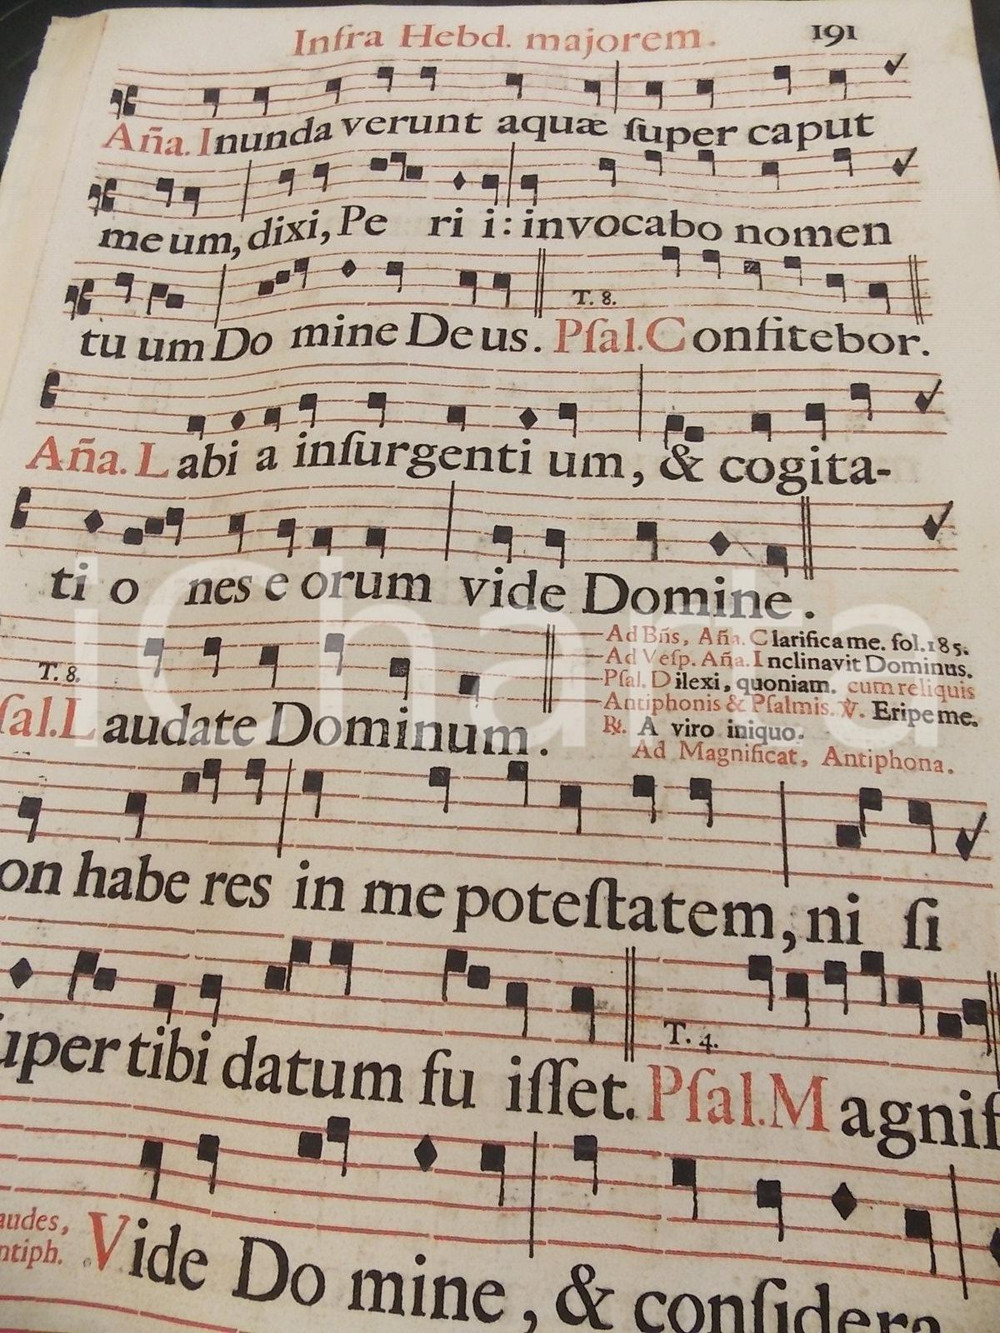 Infra Hebd. majorem. 191
Aña. Inundaverunt aquæ ſuper caput
meum, dixi, Pe ri i: invocabo nomen
tuum Do mine Deus. T. 8. Pſal. Confitebor.
Aña. Labi a inſurgenti um, & cogita-
ti o nes eorum vide Domine.
Ad Bñs, Aña. Clarifica me. fol. 185.
Ad Veſp. Aña. Inclinavit Dominus.
Pſal. Dilexi, quoniam. cum reliquis
Antiphonis & Pſalmis. ℣. Eripe me.
℟. A viro iniquo.
Ad Magnificat, Antiphona.
T. 8.
ſal. Laudate Dominum.
on habe res in me poteſtatem, ni ſi
uper tibi datum fu iſſet. T. 4. Pſal. Magnif
audes,
ntiph. Vide Do mine, & conſidera
iCharta